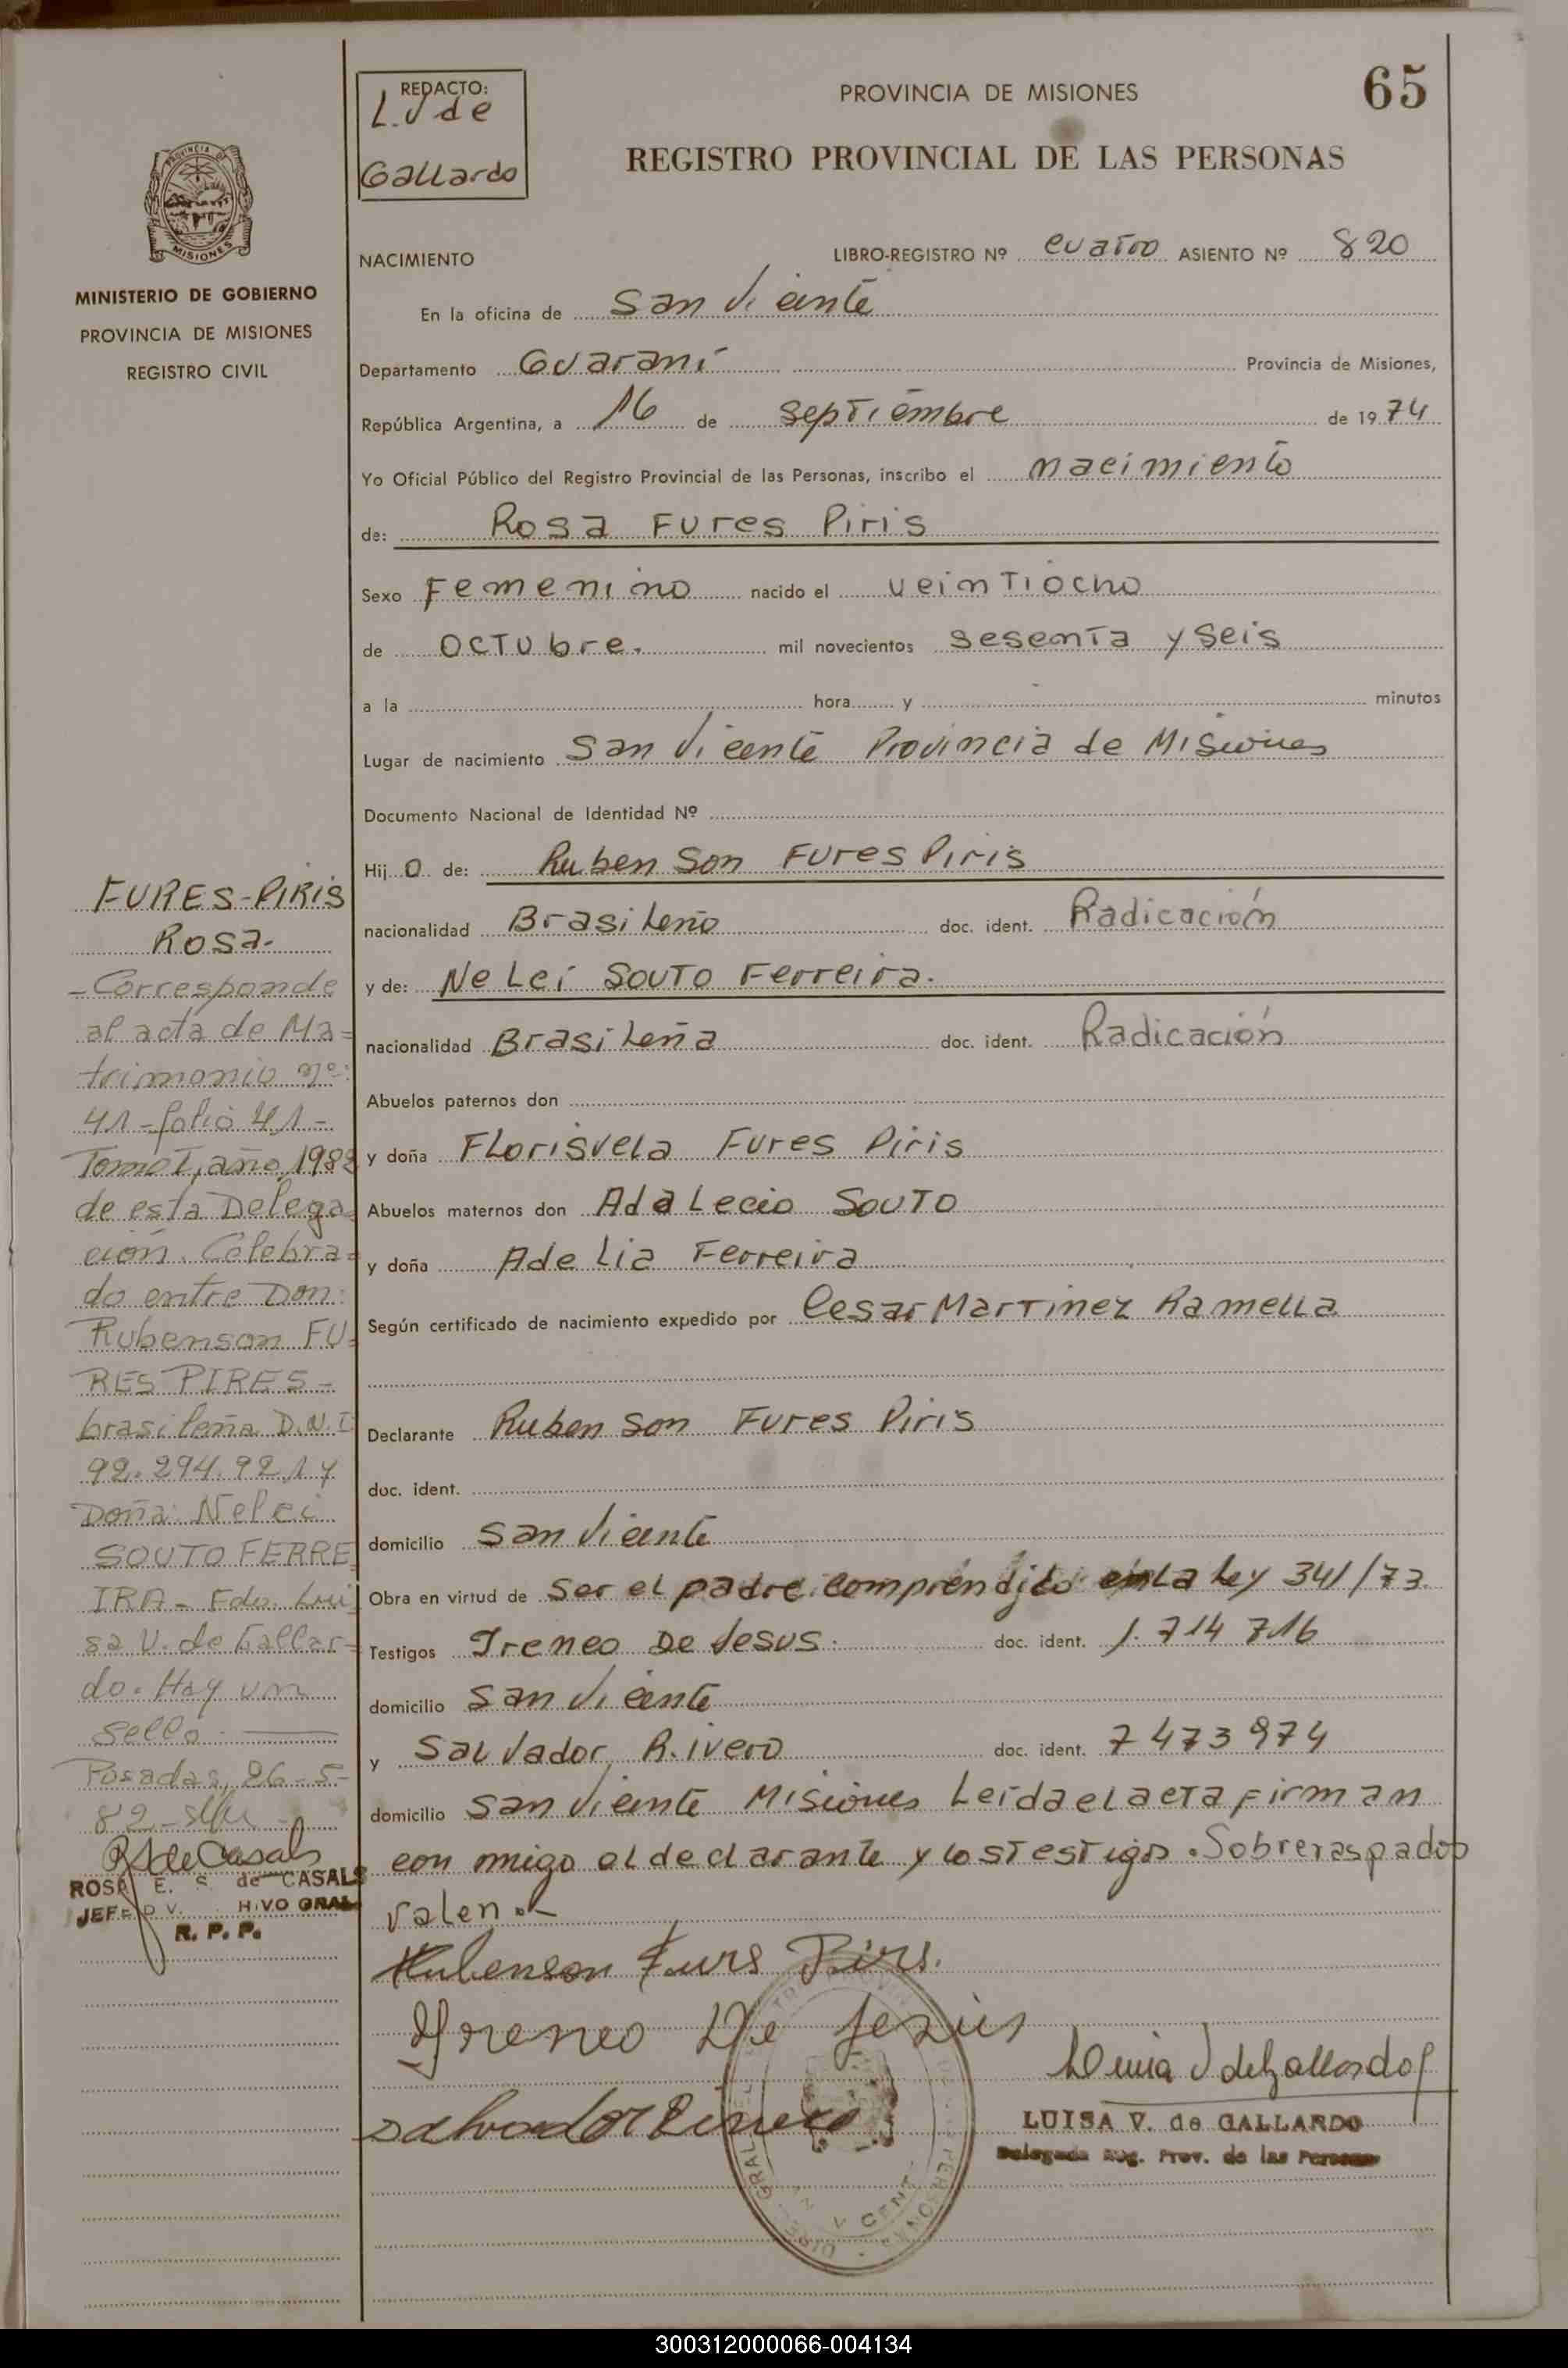 65
REDACTO:
L. V de
Gallardo
PROVINCIA DE MISIONES
REGISTRO PROVINCIAL DE LAS PERSONAS
PROVINCIA DE
MISIONES
MINISTERIO DE GOBIERNO
PROVINCIA DE MISIONES
REGISTRO CIVIL
NACIMIENTO LIBRO-REGISTRO Nº cuatro ASIENTO Nº 820
En la oficina de San Vicente
Departamento Guaraní Provincia de Misiones,
República Argentina, a 16 de septiembre de 1974
Yo Oficial Público del Registro Provincial de las Personas, inscribo el nacimiento
de: Rosa Fures Piris
Sexo Femenino nacido el veintiocho
de octubre. mil novecientos sesenta y seis
a la hora y minutos
Lugar de nacimiento San Vicente Provincia de Misiones
Documento Nacional de Identidad Nº
Hij o de: Ruben son Fures Piris
nacionalidad Brasileño doc. ident. Radicación
y de: Nelei Souto Ferreira.
nacionalidad Brasileña doc. ident. Radicación
Abuelos paternos don
y doña Florisvela Fures Piris
Abuelos maternos don Adalecio Souto
y doña Adelia Ferreira
Según certificado de nacimiento expedido por Cesar Martinez Ramella
Declarante Ruben son Fures Piris
doc. ident.
domicilio San Vicente
Obra en virtud de ser el padre comprendido en la ley 341/73.
Testigos Ireneo De Jesus. doc. ident. 1.714 716
domicilio San Vicente
y Salvador Rivero doc. ident. 7473974
domicilio San Vicente Misiones Leida el acta firman
con migo el declarante y los testigos. Sobreraspados
valen.-
Rubenson Furs Pires.
Yreneo De Jezus
Salvador Rivero
Luisa V de Gallardo
LUISA V. de GALLARDO
Delegada Reg. Prov. de las Personas
FURES-PIRIS
Rosa.
-Corresponde
al acta de Ma-
trimonio nº:
41 - folio 41-
Tomo I, año 1982
de esta Delega-
ción. Celebra-
do entre Don:
Rubenson FU-
RES PIRES-
brasileña D.N.I
92.294.921 y
Doña: Nelei
SOUTO FERRE
IRA - Fdo. Lui
sa V. de Gallar-
do. Hay un
sello.
Posadas, 26-5-
82-
R S de Casals
ROSA E. S. de CASALS
JEFE DIV. HIVO GRAL
R. P. P.
300312000066-004134